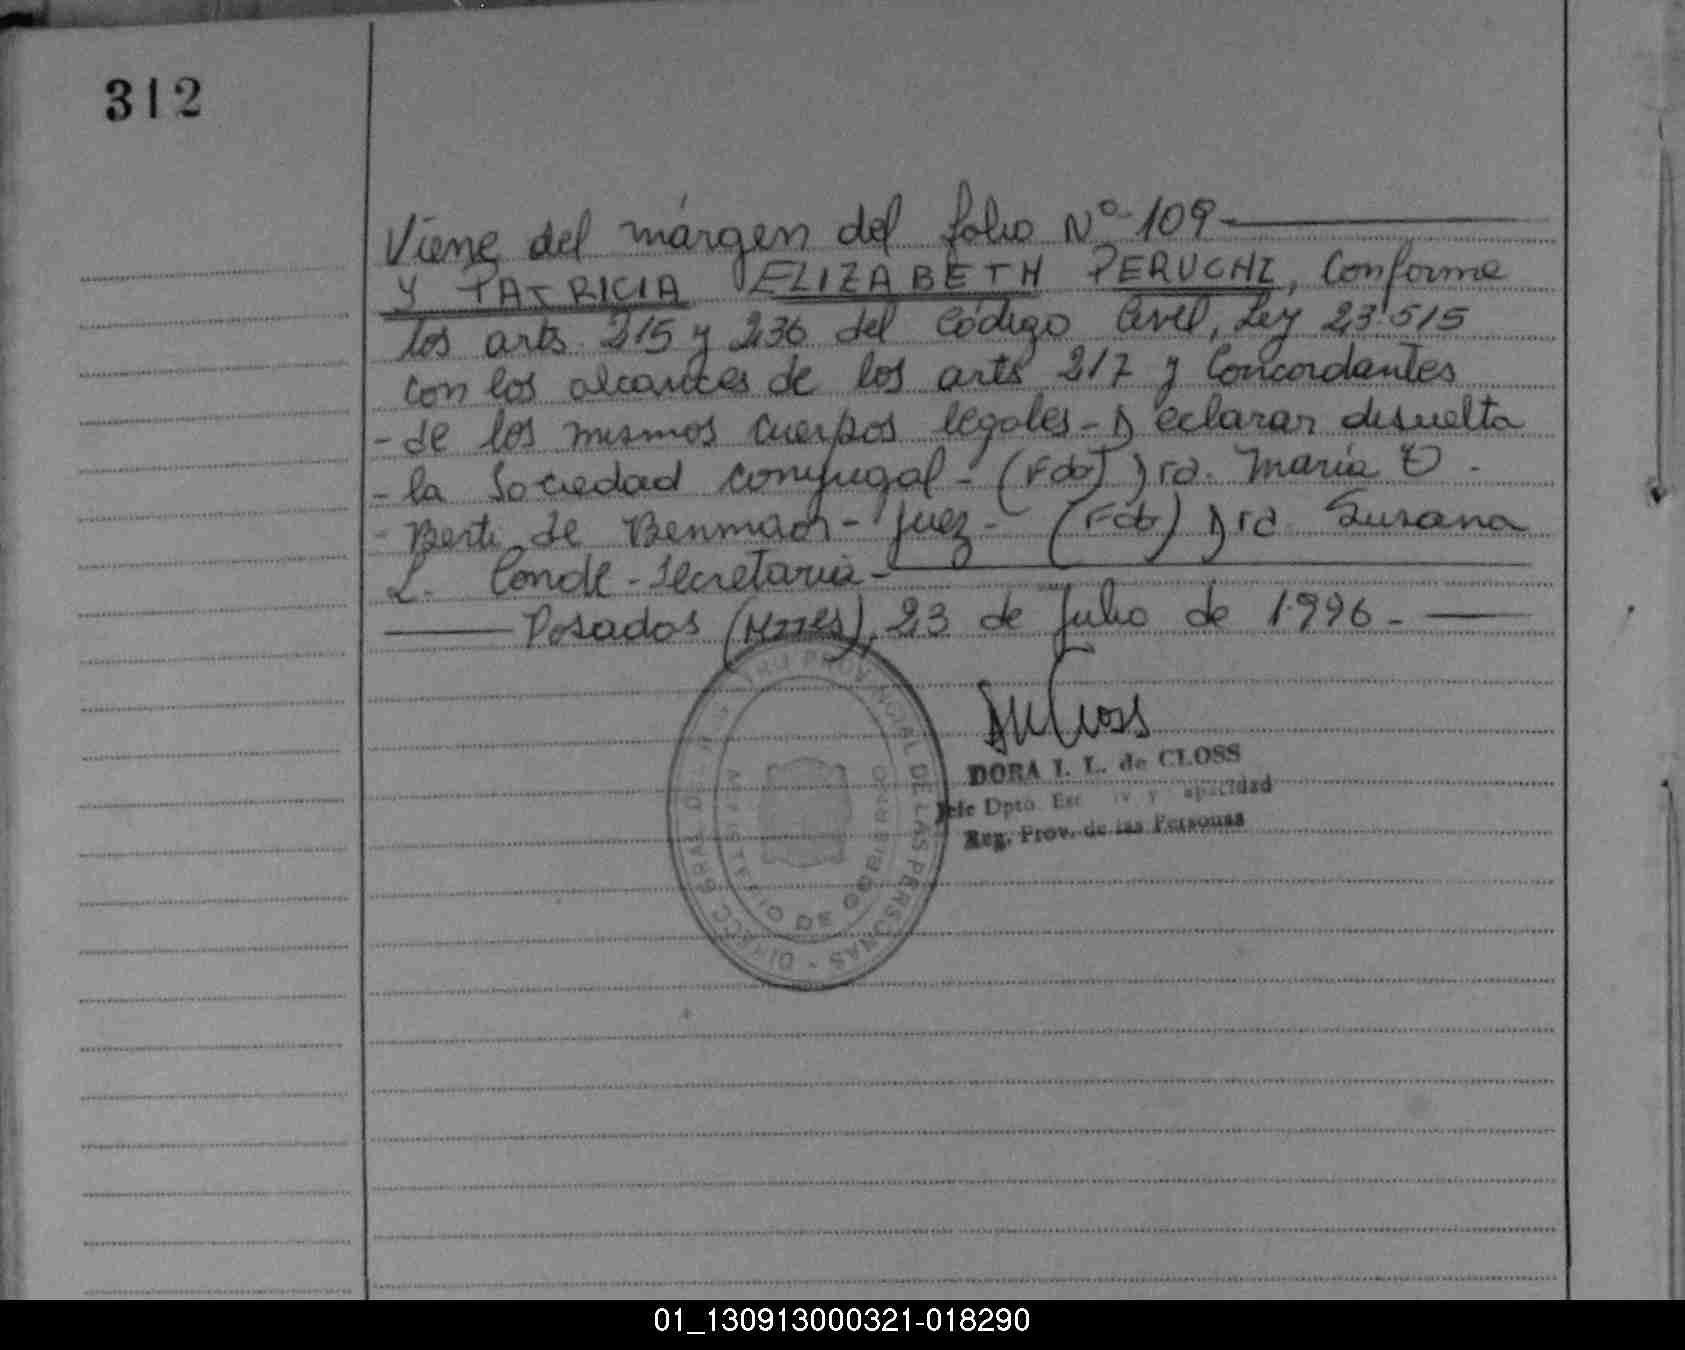 312
Viene del márgen del folio Nº 109
y PATRICIA ELIZABETH PERUCHI, Conforme
los arts. 215 y 236 del Código Civil, Ley 23.515
con los alcances de los arts 217 y Concordantes
- de los mismos cuerpos legales - Declarar disuelta
- la Sociedad conyugal - (Fdo) Dra. María E.
- Berti de Benmaor - Juez - (Fdo) Dra. Susana
L. Conde - Secretaria -
Posadas (Mnes), 23 de Julio de 1996.-
DORA I. L. de CLOSS
Jefe Dpto.
Reg. Prov. de las Personas
PROVINCIAL DE LAS PERSONAS - DIRECC. GRAL. DEL
MINISTERIO DE GOBIERNO
01_130913000321-018290